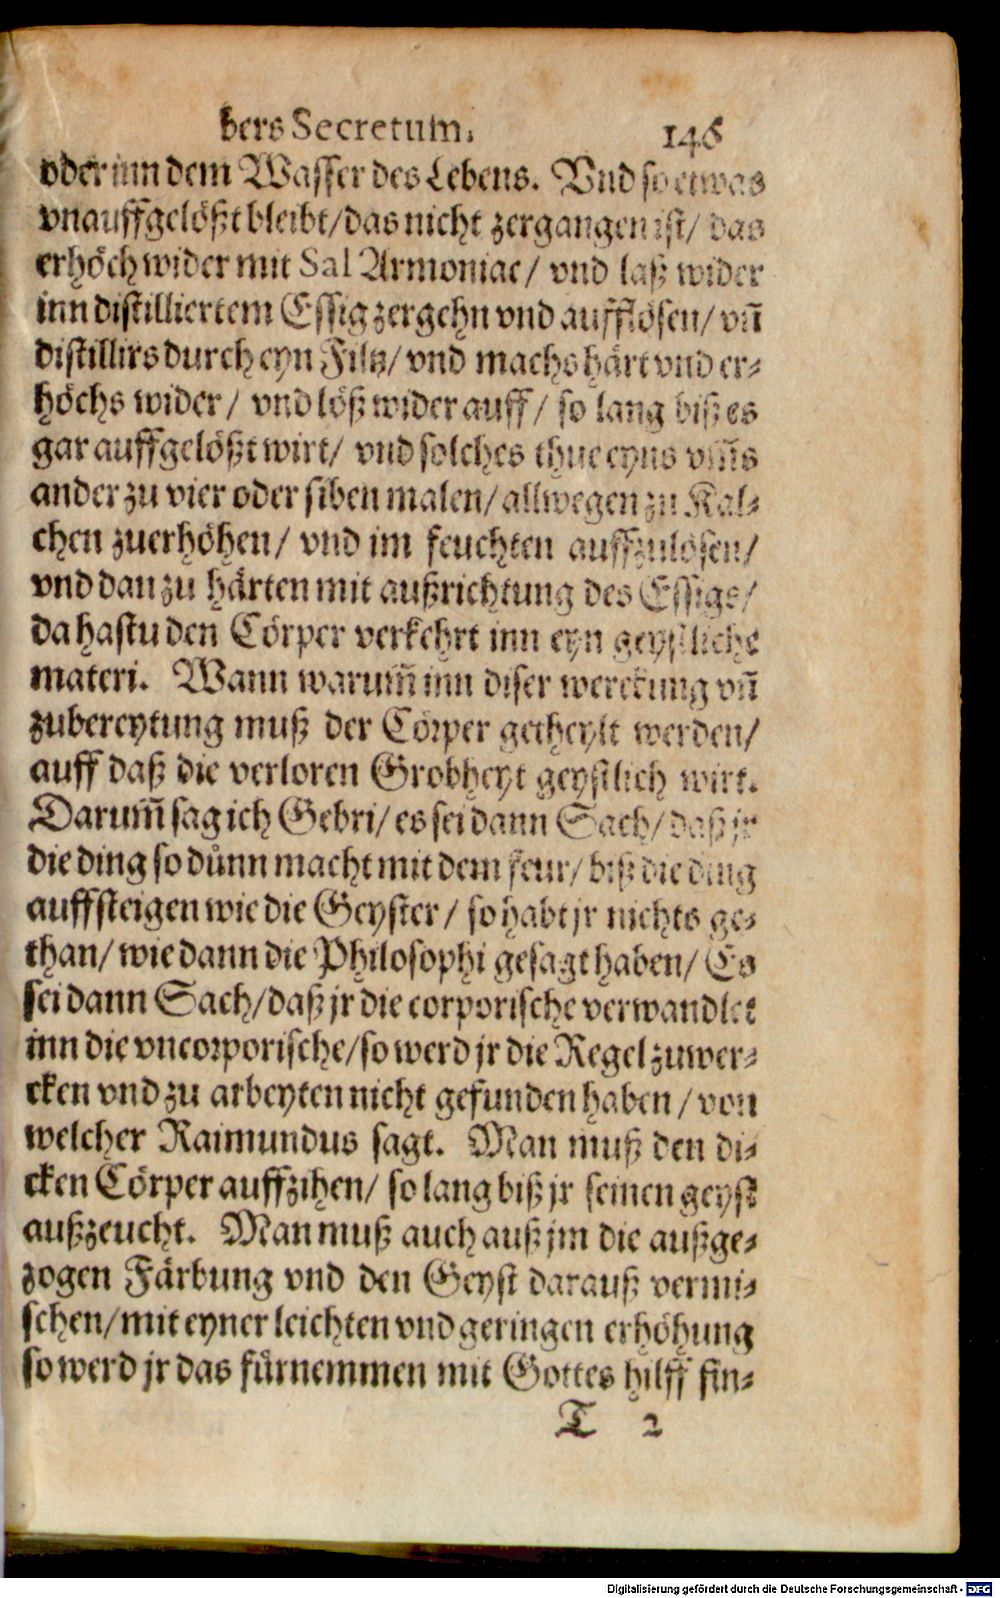 bers Secretum. 146
oder inn dem Wasser des Lebens. Vnd so etwas
vnauffgelößt bleibt/das nicht zergangen ist/ das
erhöch wider mit Sal Armoniac/ vnd laß wider
inn distilliertem Essig zergehn vnd aufflösen/ vñ
distillirs durch eyn Filtz/ vnd machs härt vnd er-
höchs wider/ vnd löß wider auff/ so lang biß es
gar auffgelößt wirt/ vnd solches thue eyns vmͫs
ander zu vier oder siben malen/ allwegen zu Kal-
chen zuerhöhen/ vnd im feuchten auffzulösen/
vnd dan zu härten mit außrichtung des Essigs/
da hastu den Cörper verkehrt inn eyn geystliche
materi. Wann warum̃ inn diser werckung vñ
zubereytung muß der Cörper getheylt werden/
auff daß die verloren Grobheyt geystlich wirt.
Darum̃ sag ich Gebri/ es sei dann Sach/ daß jr
die ding so důnn macht mit dem feur/ biß die ding
auffsteigen wie die Geyster/ so habt jr nichts ge-
than/ wie dann die Philosophi gesagt haben/ Es
sei dann Sach/daß jr die corporische verwandlet
inn die vncorporische/so werd jr die Regel zuwer-
cken vnd zu arbeyten nicht gefunden haben/ von
welcher Raimundus sagt. Man muß den di-
cken Cörper auffzihen/ so lang biß jr seinen geyst
außzeucht. Man muß auch auß jm die außge-
zogen Färbung vnd den Geyst darauß vermi-
schen/mit eyner leichten vnd geringen erhöhung
so werd jr das fürnemmen mit Gottes hilff fin-
T 2
Digitalisierung gefördert durch die Deutsche Forschungsgemeinschaft - DFG